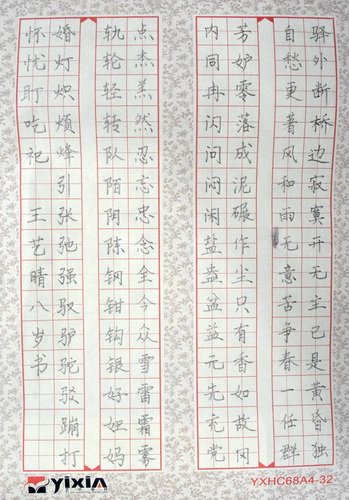 驿外断桥边寂寞开无主已是黄昏独
自愁更著风和雨无意苦争春一任群
芳妒零落成泥碾作尘只有香如故冈
内同冉闪问闷闲盐盎盆益元先充党
点杰羔然忍忘忠念全今众雪雷霜雾
轨轮轻转队陌阴陈钢钳钩银好妲妈
婚灯炽烦烽引张弛强驭驴驼驳蹦打
怀忧盯吃祀
王艺晴八岁书
YIXIA
YXHC68A4-32